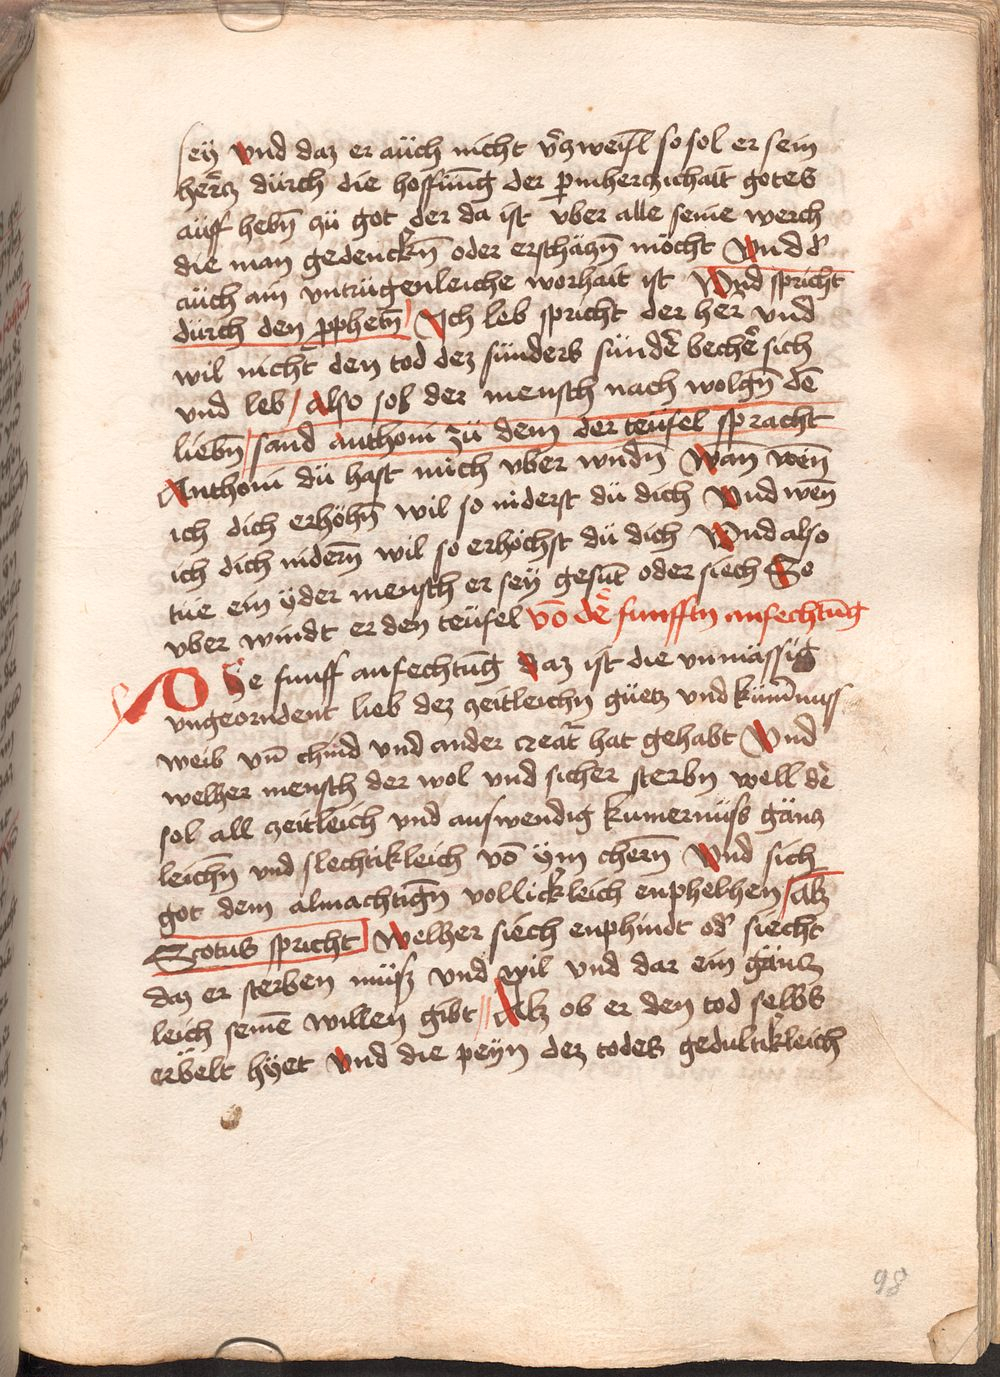 sey vnd daz er aüch nicht v̄zweifl so sol er sein
hercz dürch die hoffūng der p̄mherczichait gotes
aüff hebn̄ zü got der da ist vber alle seine werch
die man gedenckn̄ oder erschäczn̄ möcht Vnd d̄
aüch ain vntrügenleiche worhait ist Vnd spricht
dürch den pphetn̄ Ich leb spricht der her̄ vnd
wil nicht den tod dez sünders sünd̄ bech̄e sich
vnd leb / Also sol der mensch nach wolgn̄ dē
liebn̄ / sand anthoni zü dem der teüfel spracht
Anthoni dü hast mich vber wndn̄ Wan wen̄
ich dich erhöhn̄ wil so niderst dü dich Vnd wen̄
ich dich nidern̄ wil so erhöchst dü dich Vnd also
tüe ein yder mensch er sey gesūt oder siech So
vber windt er den teüfel vō dē funfftn anfechtūng
Dye funff anfechtūg daz ist die vnmässig
vngeorndent lieb dez zeitleichn güetz vnd kūm̄nuss
weib vn̄ chind vnd ander creat̄ hat gehabt Vnd
welher mensch der wol vnd sicher sterbn well d̄e
sol all zeitleich vnd auswendig kumernüss gäncz
leichn̄ vnd slechtikleich vō ym chern̄ Vnd sich
got dem almachtign̄ vollickleich enphelhen / Alz
Scotus spricht Welher siech enphindt od̄ siecht
daz er sterben müsz vnd wil vnd dar ein gäncz
leich seinē willen gibt // Alz ob er den tod selbs
erbelt hyet Vnd die peyn dez todes gedultikleich
98